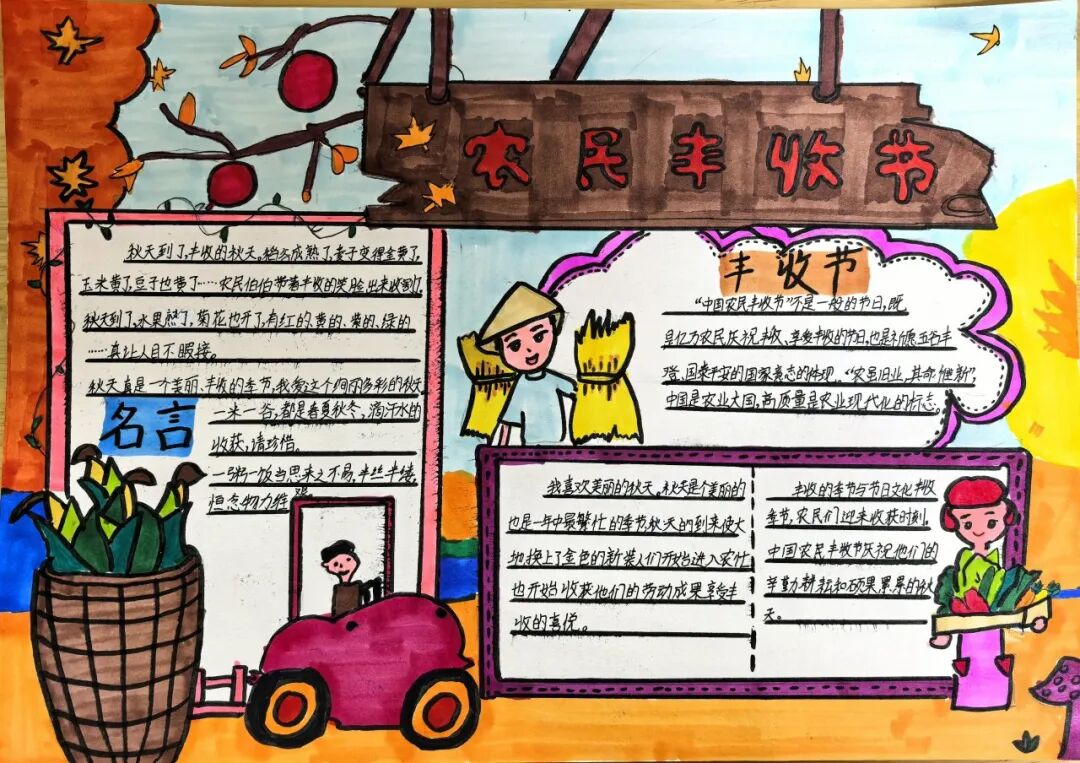 农民丰收节
秋天到了,丰收的秋天,稻谷成熟了,麦子变得金黄了,
玉米黄了,豆子也黄了……农民伯伯带着丰收的笑脸出来收割了,
秋天到了,水果熟了,菊花也开了,有红的、黄的、紫的、绿的
……真让人目不暇接。
秋天真是一个美丽、丰收的季节,我爱这个多彩的秋天
名言
一米一谷,都是春夏秋冬,滴汗水的
收获,请珍惜。
一粥一饭当思来之不易,半丝半缕,
恒念物力维艰
丰收节
“中国农民丰收节”不是一般的节日,既
是亿万农民庆祝丰收、享受丰收的节日,也是祈愿五谷丰
登、国泰平安的国家意志的体现。“农虽旧业,其命惟新”,
中国是农业大国,高质量是农业现代化的标志。
我喜欢美丽的秋天,秋天是个美丽的
也是一年中最繁忙的季节秋天的到来使大
地换上了金色的新装人们开始进入农忙
也开始收获他们的劳动成果享受丰
收的喜悦。
丰收的季节与节日文化丰收
季节,农民们迎来收获时刻,
中国农民丰收节庆祝他们的
辛勤耕耘和硕果累累的秋
天。